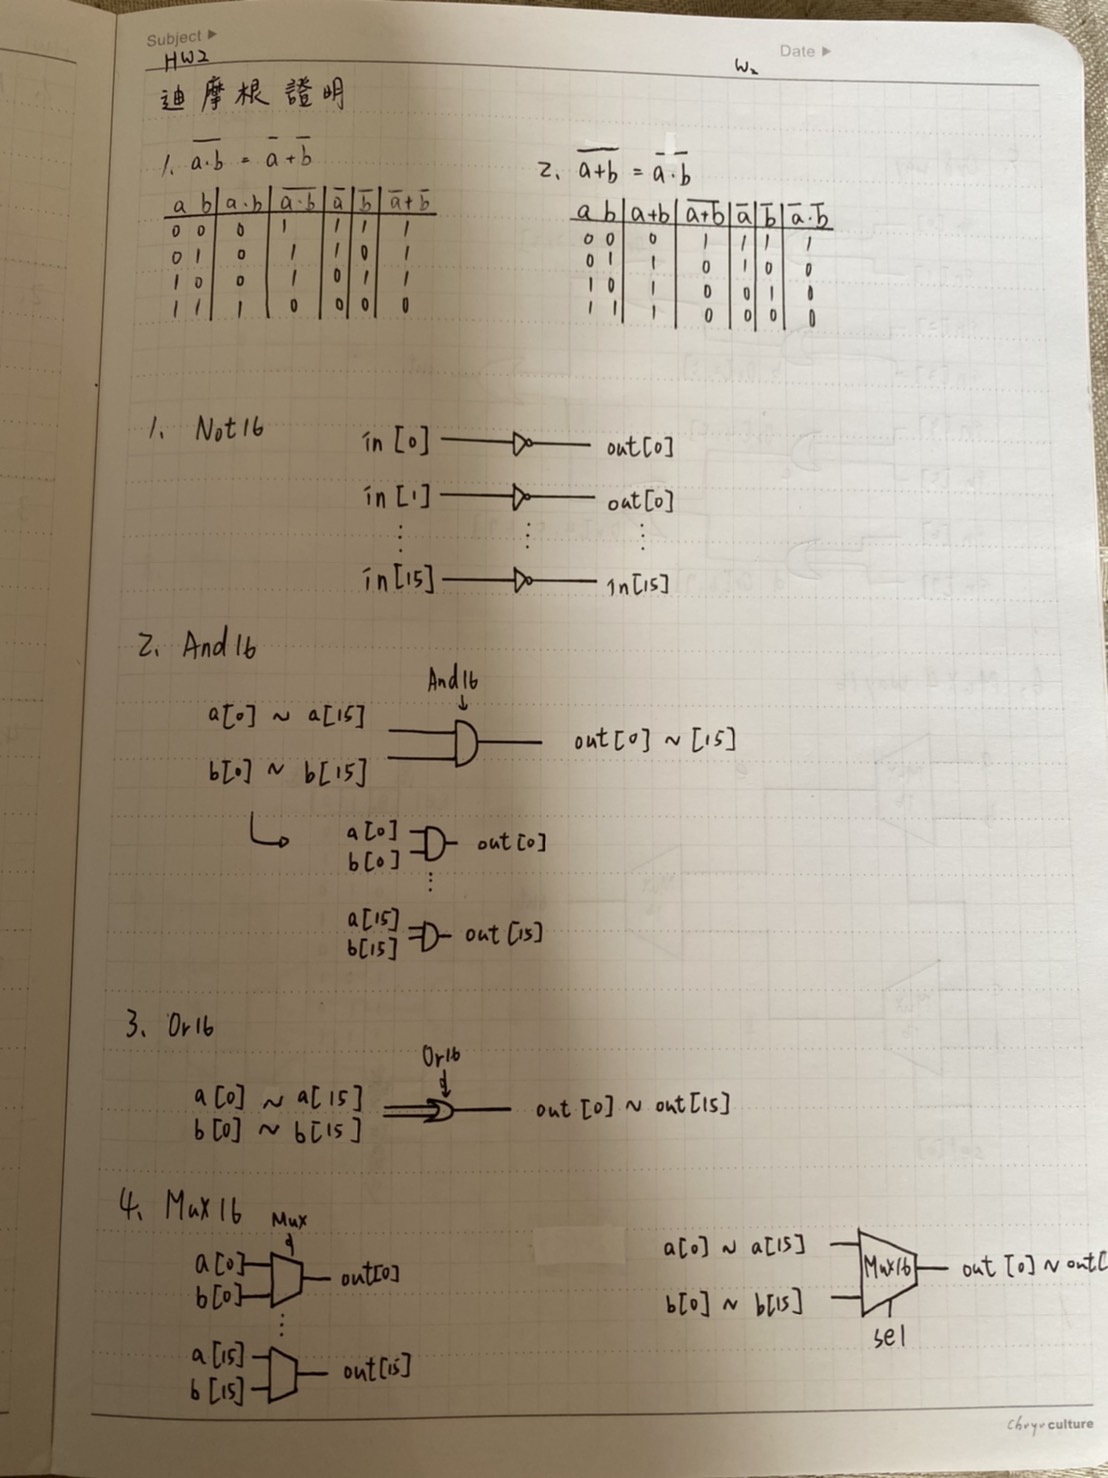 Subject ▶
HW2
Date ▶
W2
迪摩根證明
1. a̅·̅b̅ = a̅ + b̅
a b a·b a̅·̅b̅ a̅ b̅ a̅+b̅
0 0 0 1 1 1 1
0 1 0 1 1 0 1
1 0 0 1 0 1 1
1 1 1 0 0 0 0
2. a̅+̅b̅ = a̅·b̅
a b a+b a̅+̅b̅ a̅ b̅ a̅·b̅
0 0 0 1 1 1 1
0 1 1 0 1 0 0
1 0 1 0 0 1 0
1 1 1 0 0 0 0
1. Not16
in[0] out[0]
in[1] out[0]
⋮ ⋮ ⋮
in[15] in[15]
2. And16
And16
a[0] ~ a[15]
b[0] ~ b[15]
out[0] ~ [15]
a[0]
b[0]
out[0]
⋮
a[15]
b[15]
out[15]
3. Or16
Or16
a[0] ~ a[15]
b[0] ~ b[15]
out[0] ~ out[15]
4. Mux16
Mux
a[0]
b[0]
out[0]
⋮
a[15]
b[15]
out[15]
a[0] ~ a[15]
b[0] ~ b[15]
Mux16
out[0] ~ out[
sel
culture